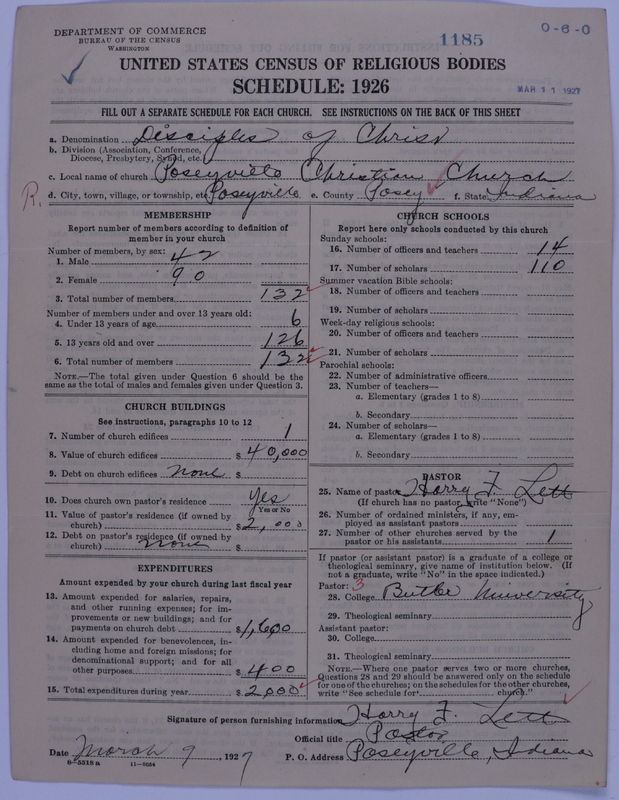 DEPARTMENT OF COMMERCE
BUREAU OF THE CENSUS
WASHINGTON
1185
0-6-0
UNITED STATES CENSUS OF RELIGIOUS BODIES
SCHEDULE: 1926
MAR 11 1927
FILL OUT A SEPARATE SCHEDULE FOR EACH CHURCH. SEE INSTRUCTIONS ON THE BACK OF THIS SHEET
a. Denomination Disciples of Christ
b. Division (Association, Conference, Diocese, Presbytery, Synod, etc.)
c. Local name of church Poseyville Christian Church
R. d. City, town, village, or township, etc. Poseyville e. County Posey f. State Indiana
MEMBERSHIP
Report number of members according to definition of
member in your church
Number of members, by sex:
1. Male 42
2. Female 90
3. Total number of members 132
Number of members under and over 13 years old:
4. Under 13 years of age 6
5. 13 years old and over 126
6. Total number of members 132
NOTE.—The total given under Question 6 should be the
same as the total of males and females given under Question 3.
CHURCH BUILDINGS
See instructions, paragraphs 10 to 12
7. Number of church edifices 1
8. Value of church edifices $ 40,000
9. Debt on church edifices none $
10. Does church own pastor's residence Yes
Yes or No
11. Value of pastor's residence (if owned by
church) $ 2,000
12. Debt on pastor's residence (if owned by
church) none $
EXPENDITURES
Amount expended by your church during last fiscal year
13. Amount expended for salaries, repairs,
and other running expenses; for im-
provements or new buildings; and for
payments on church debt $ 1,600
14. Amount expended for benevolences, in-
cluding home and foreign missions; for
denominational support; and for all
other purposes $ 400
15. Total expenditures during year $ 2,000
CHURCH SCHOOLS
Report here only schools conducted by this church
Sunday schools:
16. Number of officers and teachers 14
17. Number of scholars 110
Summer vacation Bible schools:
18. Number of officers and teachers
19. Number of scholars
Week-day religious schools:
20. Number of officers and teachers
21. Number of scholars
Parochial schools:
22. Number of administrative officers
23. Number of teachers—
a. Elementary (grades 1 to 8)
b. Secondary
24. Number of scholars—
a. Elementary (grades 1 to 8)
b. Secondary
PASTOR
25. Name of pastor Harry F. Lett
(If church has no pastor, write "None")
26. Number of ordained ministers, if any, em-
ployed as assistant pastors
27. Number of other churches served by the
pastor or his assistants 1
If pastor (or assistant pastor) is a graduate of a college or
theological seminary, give name of institution below. (If
not a graduate, write "No" in the space indicated.)
Pastor: 3
28. College Butler University
29. Theological seminary
Assistant pastor:
30. College
31. Theological seminary
NOTE.—Where one pastor serves two or more churches,
Questions 28 and 29 should be answered only on the schedule
for one of the churches; on the schedules for the other churches,
write "See schedule for church."
Signature of person furnishing information Harry F. Lett
Official title Pastor
Date March 9, 1927 P. O. Address Poseyville, Indiana
8-5518a 11-9054